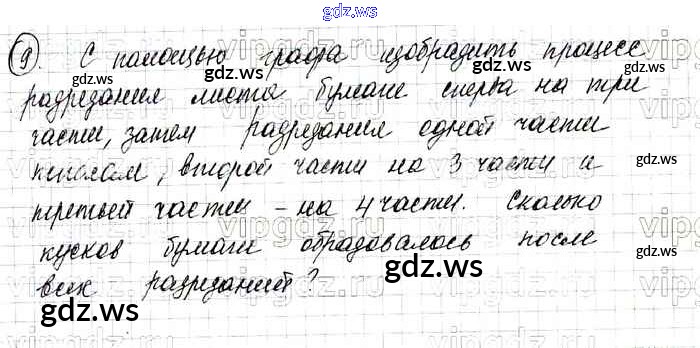 gdz.ws
9. С помощью графа изобразить процесс
gdz.ws gdz.ws
разрезания листа бумаги сперва на три
части, затем разрезания одной части
пополам, второй части на 3 части и
gdz.ws gdz.ws
третьей части – на 4 части. Сколько
кусков бумаги образовалось после
всех разрезаний?
gdz.ws gdz.ws